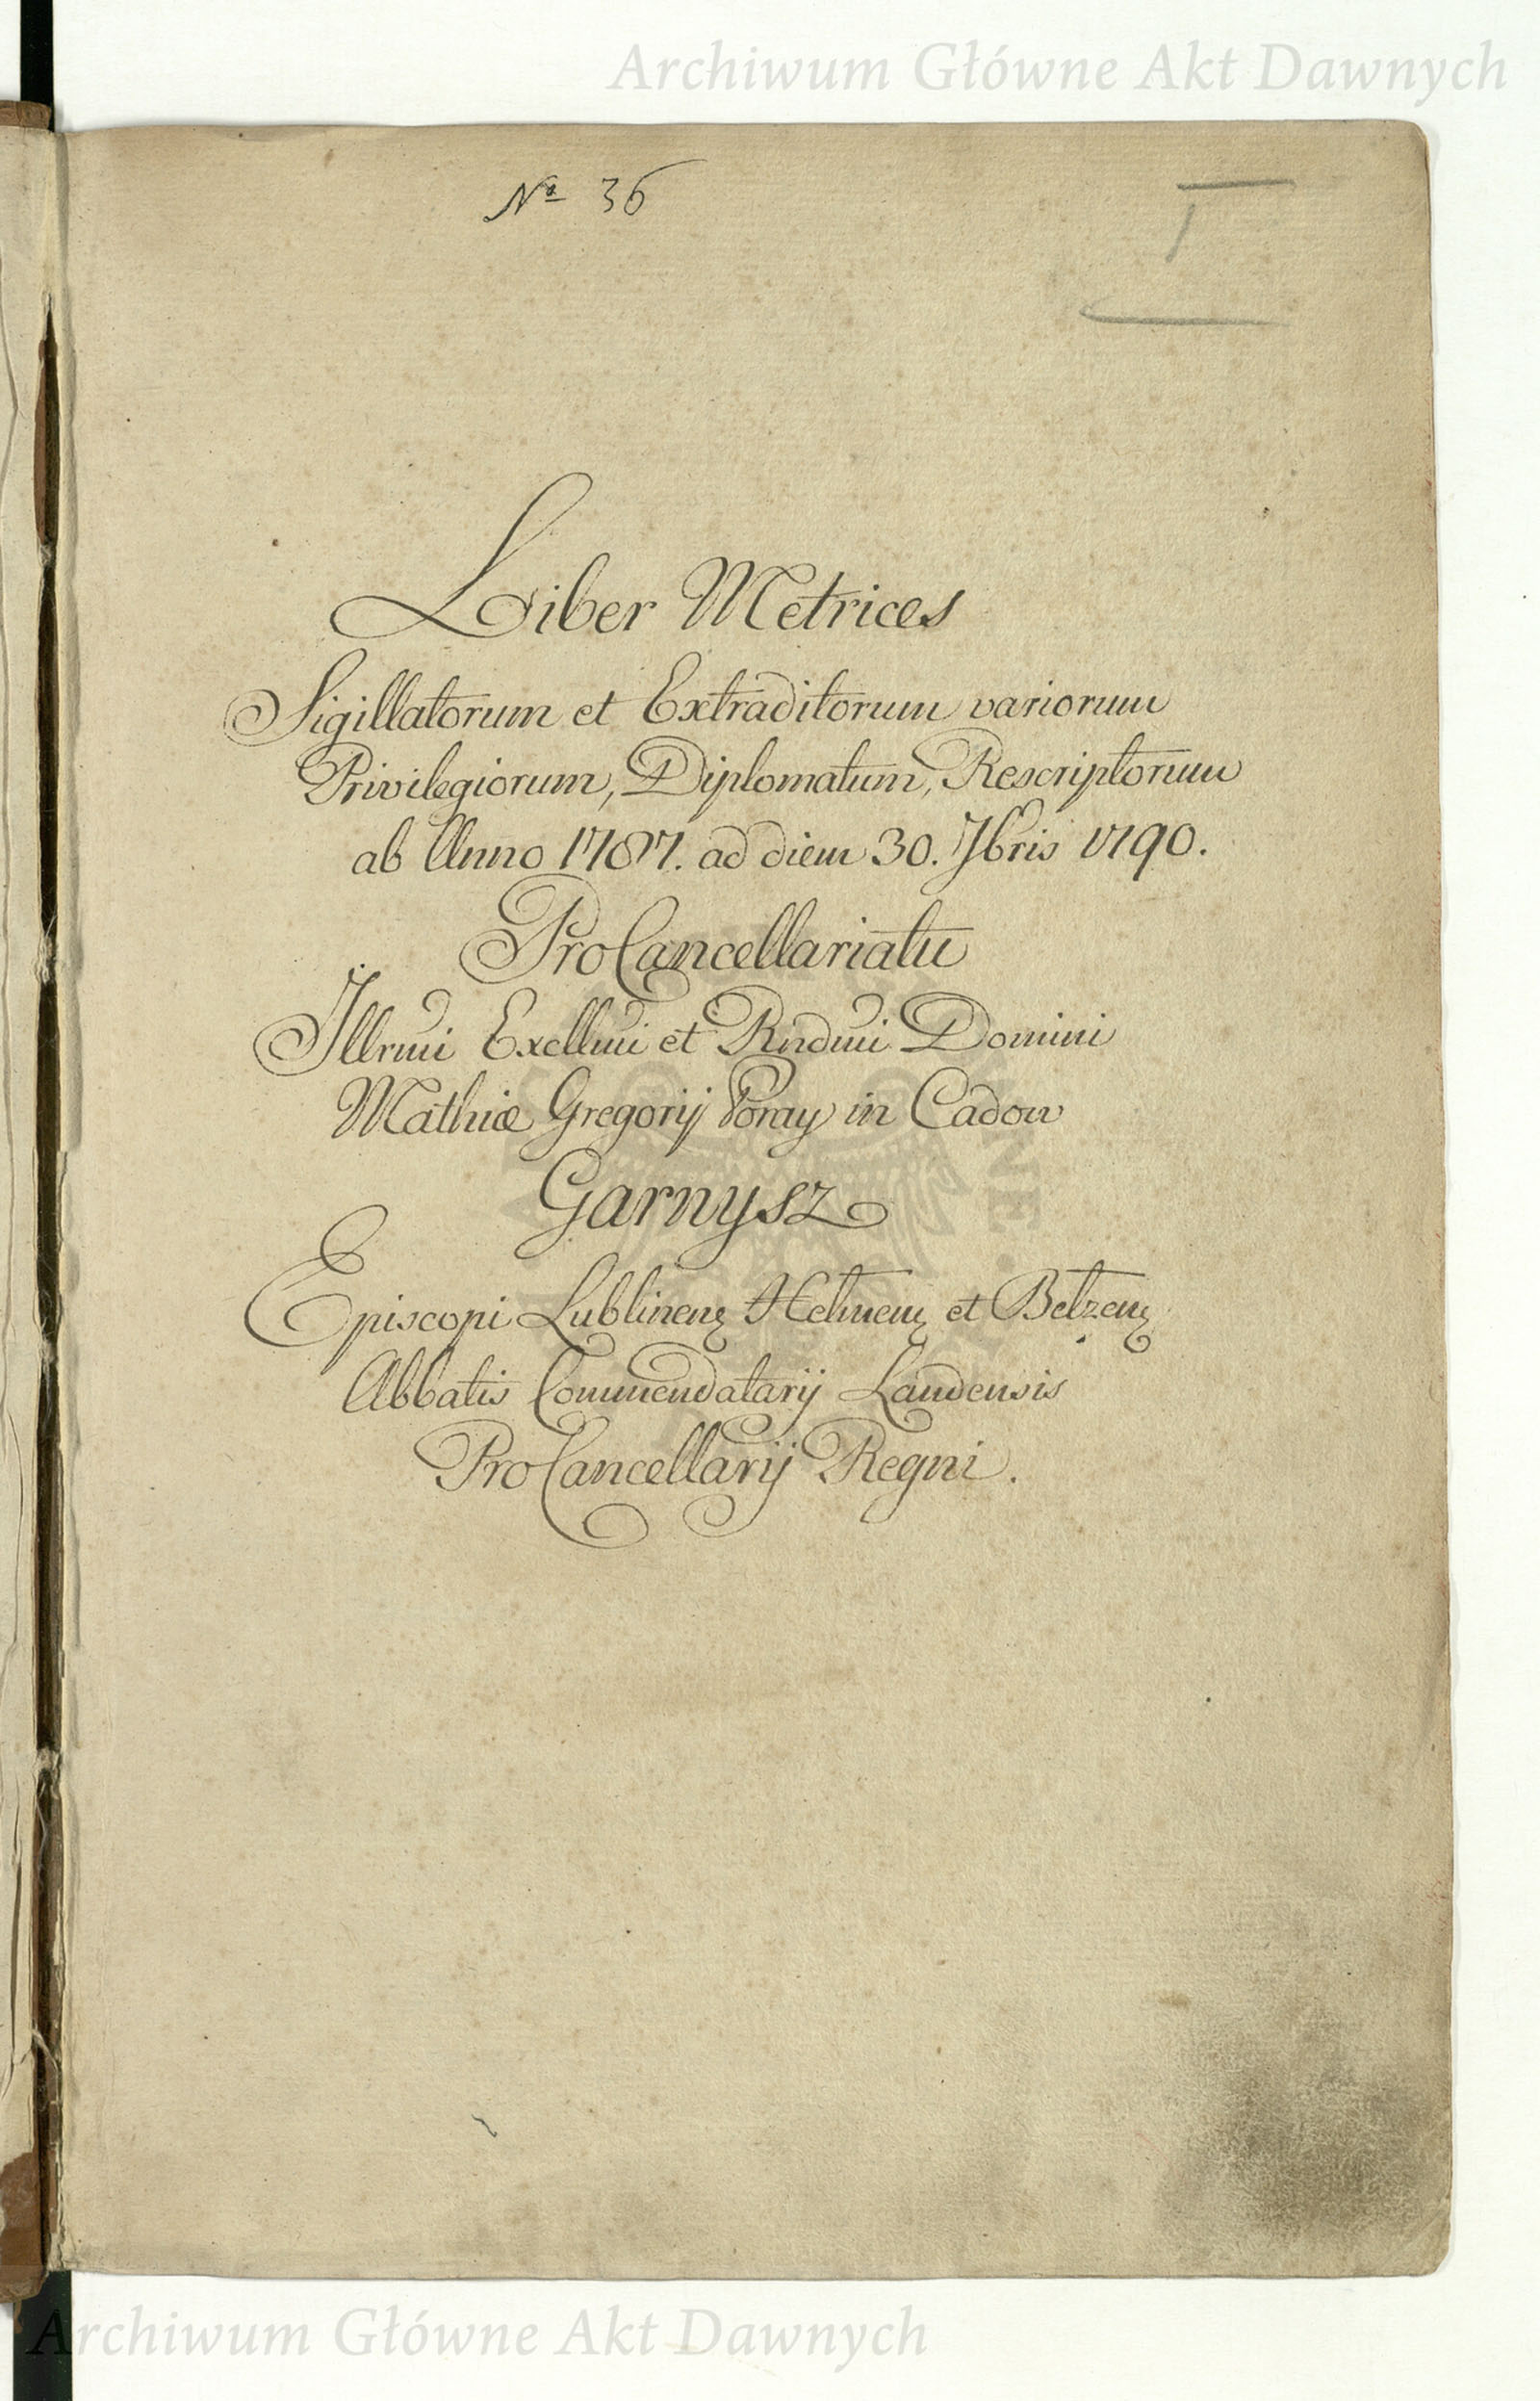 Archiwum Główne Akt Dawnych
No 36
Liber Metrices
Sigillatorum et Extraditorum variorum
Privilegiorum, Diplomatum, Rescriptorum
ab Anno 1787. ad diem 30. 7bris 1790.
ProCancellariatu
Illrmi Excllmi et Rndmi Domini
Mathiæ Gregorij Poray in Cadow
Garnysz
Episcopi Lublinenꝫ Helmenꝫ et Belzenꝫ
Abbatis Commendatarij Landensis
ProCancellarij Regni.
Archiwum Główne Akt Dawnych